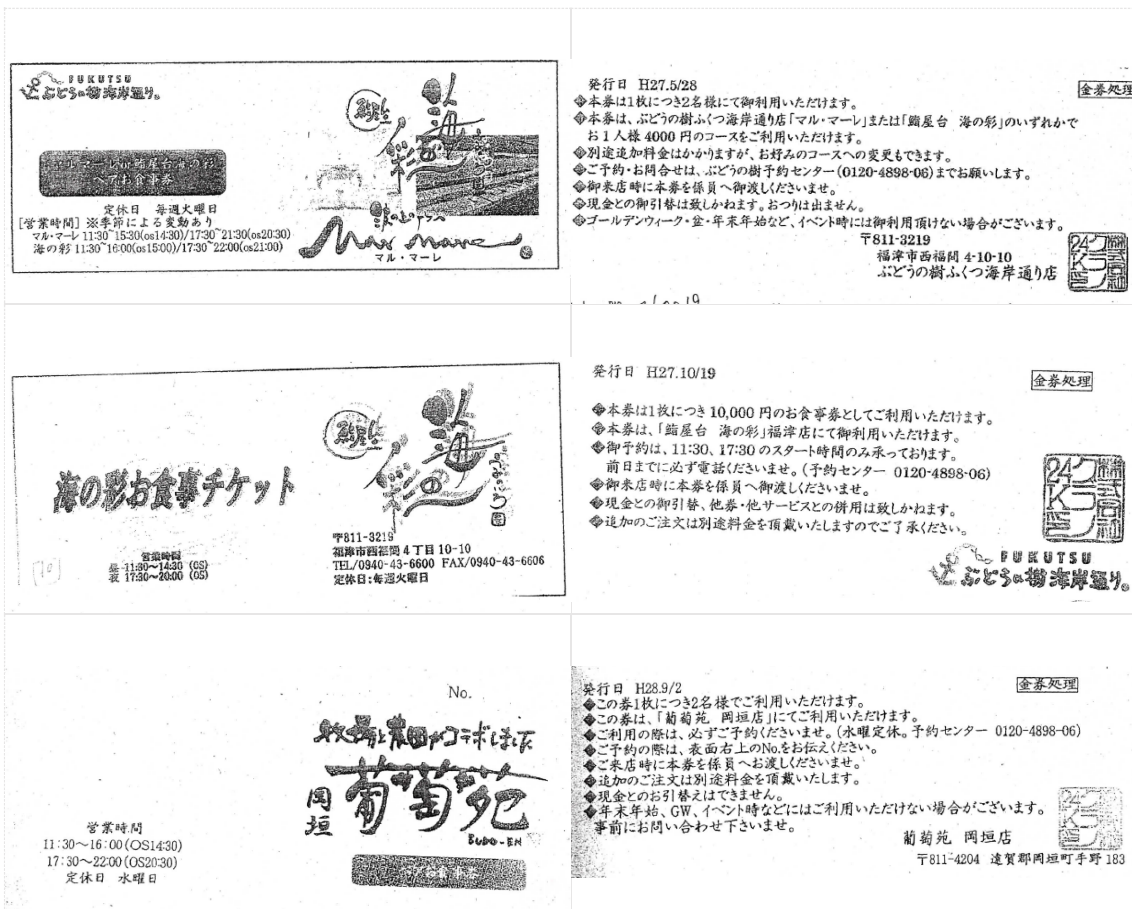 FUKUTSU
ぶどうの樹海岸通り。
鮨屋台
海の彩
マルマーレor鮨屋台海の彩
ペアお食事券
定休日 毎週火曜日
[営業時間] ※季節による変動あり
マル・マーレ 11:30~15:30(os14:30)/17:30~21:30(os20:30)
海の彩 11:30~16:00(os15:00)/17:30~22:00(os21:00)
Mar Mare
マル・マーレ
発行日 H27.5/28
金券処理
◈本券は1枚につき2名様にて御利用いただけます。
◈本券は、ぶどうの樹ふくつ海岸通り店「マル・マーレ」または「鮨屋台 海の彩」のいずれかで
お1人様 4000 円のコースをご利用いただけます。
◈別途追加料金はかかりますが、お好みのコースへの変更もできます。
◈ご予約・お問合せは、ぶどうの樹予約センター(0120-4898-06)までお願します。
◈御来店時に本券を係員へ御渡しくださいませ。
◈現金との御引替は致しかねます。おつりは出ません。
◈ゴールデンウィーク・盆・年末年始など、イベント時には御利用頂けない場合がございます。
〒811-3219
福津市西福間 4-10-10
ぶどうの樹ふくつ海岸通り店
株式会社
グラノ
24K
海の彩お食事チケット
営業時間
昼 11:30～14:30 (OS)
夜 17:30～20:00 (OS)
鮨屋台
海の彩
〒811-3219
福津市西福間 4丁目 10-10
TEL/0940-43-6600 FAX/0940-43-6606
定休日:毎週火曜日
発行日 H27.10/19
金券処理
◈本券は1枚につき 10,000 円のお食事券としてご利用いただけます。
◈本券は、「鮨屋台 海の彩」福津店にて御利用いただけます。
◈御予約は、11:30、17:30 のスタート時間のみ承っております。
前日までに必ず電話くださいませ。(予約センター 0120-4898-06)
◈御来店時に本券を係員へ御渡しくださいませ。
◈現金との御引替、他券・他サービスとの併用は致しかねます。
◈追加のご注文は別途料金を頂戴いたしますのでご了承ください。
株式会社
グラノ
24K
FUKUTSU
ぶどうの樹海岸通り。
No.
牧場と農園がコラボしました
岡垣
葡萄苑
BUDO-EN
営業時間
11:30～16:00(OS14:30)
17:30～22:00(OS20:30)
定休日 水曜日
発行日 H28.9/2
金券処理
◆この券1枚につき2名様でご利用いただけます。
◆この券は、「葡萄苑 岡垣店」にてご利用いただけます。
◆ご利用の際は、必ずご予約くださいませ。(水曜定休。予約センター 0120-4898-06)
◆ご予約の際は、表面右上のNo.をお伝えください。
◆ご来店時に本券を係員へお渡しくださいませ。
◆追加のご注文は別途料金を頂戴いたします。
◆現金とのお引替えはできません。
◆年末年始、GW、イベント時などにはご利用いただけない場合がございます。
事前にお問い合わせ下さいませ。
葡萄苑 岡垣店
〒811-4204 遠賀郡岡垣町手野 183